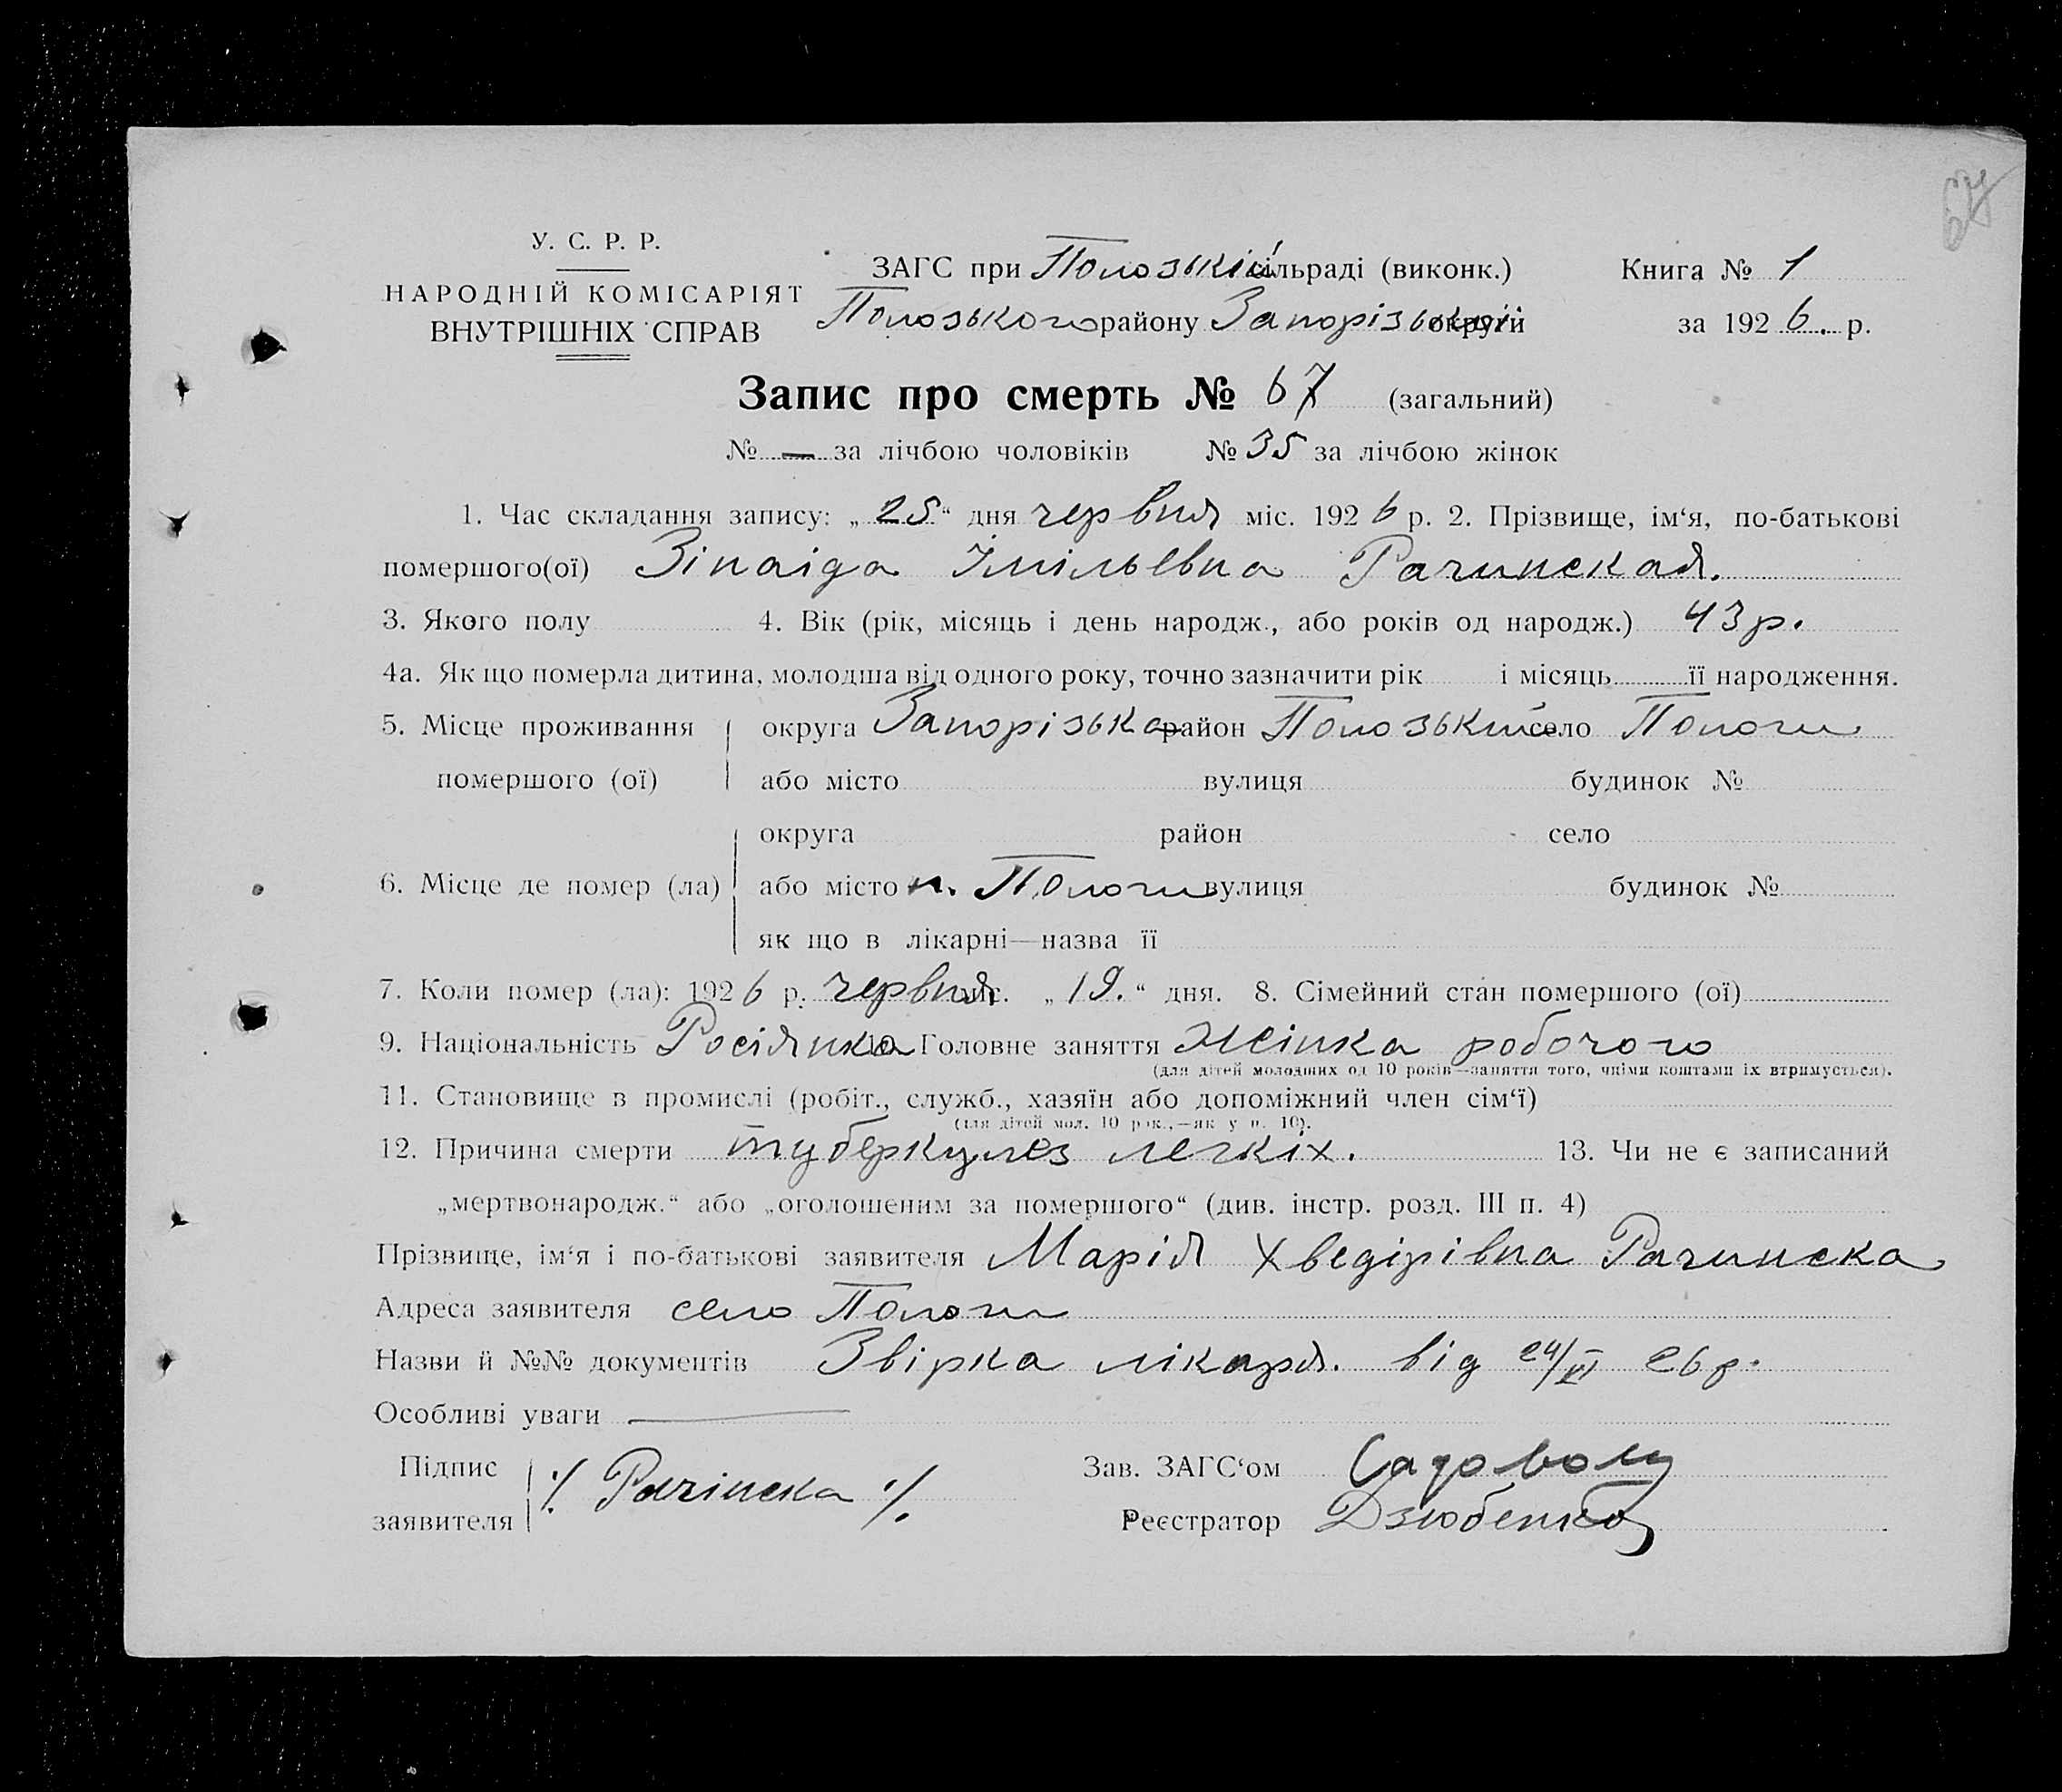 67
У. С. Р. Р.
НАРОДНІЙ КОМІСАРІЯТ
ВНУТРІШНІХ СПРАВ
ЗАГС при Полозькій сільраді (виконк.)
Полозького району Запорізької округи
Книга № 1
за 1926. р.
Запис про смерть № 67 (загальний)
№ — за лічбою чоловіків № 35 за лічбою жінок
1. Час складання запису: „25“ дня червня міс. 1926 р. 2. Прізвище, ім‘я, по-батькові
помершого(ої) Зінаіда Імільевна Рачинская.
3. Якого полу 4. Вік (рік, місяць і день народж., або років од народж.) 43 р.
4а. Як що померла дитина, молодша від одного року, точно зазначити рік і місяць її народження.
5. Місце проживання округа Запорізька район Полозький село Пологи
помершого (ої) або місто вулиця будинок №
округа район село
6. Місце де помер (ла) або місто п. Пологи вулиця будинок №
як що в лікарні—назва її
7. Коли помер (ла): 1926 р. червня міс. „19.“ дня. 8. Сімейний стан помершого (ої)
9. Національність Росіянка 10. Головне заняття Жінка робочого
(для дітей молодших од 10 років—заняття того, чиїми коштами їх втримується).
11. Становище в промислі (робіт., служб., хазяїн або допоміжний член сім‘ї)
(для дітей мол. 10 рок.,—як у п. 10).
12. Причина смерти туберкулез легкіх. 13. Чи не є записаний
„мертвонародж.“ або „оголошеним за помершого“ (див. інстр. розд. III п. 4)
Прізвище, ім‘я і по-батькові заявителя Марія Хведірівна Рачинска
Адреса заявителя село Пологи
Назви й №№ документів Звірка лікаря. від 24/VI 26 р.
Особливі уваги
Підпис заявителя ·/. Рачінска ·/.
Зав. ЗАГС‘ом
Реєстратор Дзюбенко